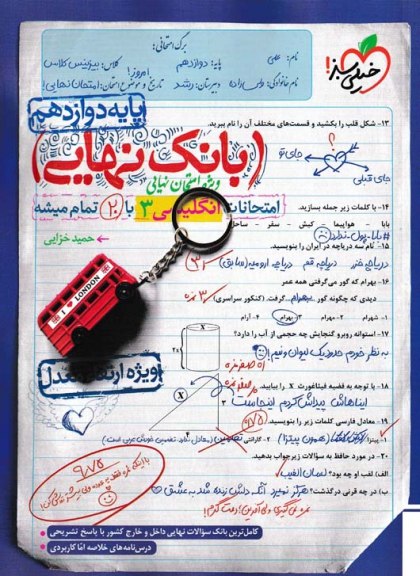 برگ امتحانی:
نام:
پایه: دوازدهم
کلاس: بیزینس کلاس
نام خانوادگی:
دبیرستان: رشد
تاریخ و موضوع امتحان: امروز! امتحان نهایی!
خیلی سبز!
۱۳- شکل قلب را بکشید و قسمت‌های مختلف آن را نام ببرید.
پایه دوازدهم
(بانک نهایی)
ویژه امتحان نهایی
جای تو
جای قبلی
۱۴- با کلمات زیر جمله بسازید.
امتحانات انگلیسی ۳ با ۲۰ تمام میشه
بابا - هواپیما - کیش - سفر - ساحل
#بابا-پول-ندارد
حمید خزایی
۱۵- نام سه دریاچه در ایران را بنویسید.
دریاچه خزر دریاچه قم دریاچه ارومیه (سابق)
۱۶- بهرام که گور می‌گرفتی همه عمر
دیدی که چگونه گور بهرام گرفت. (کنکور سراسری)
۱- شهرام ۲- بهرام ۳- بهرام ۴- آرام
۱۷- استوانه روبرو گنجایش چه حجمی از آب را دارد؟
به نظر خودم حدود یک لیوان و نیم!
I ♥ LONDON
ویژه ارتقای معدل
۱۸- با توجه به قضیه فیثاغورث X را بیابید.
ایناهاش پیداش کردم اینجاست
۱۹- معادل فارسی کلمات زیر را بنویسید.
۱- پیتزا
۲- گارانتی
۲۰- در مورد حافظ به سؤالات زیر جواب بدهید.
الف) لقب او چه بود؟ لسان الغیب
ب) در چه قرنی درگذشت؟ هرگز نمیرد آنکه دلش زنده شد به عشق
۹/۷۵
کامل‌ترین بانک سؤالات نهایی داخل و خارج کشور با پاسخ تشریحی
درس‌نامه‌های خلاصه اما کاربردی